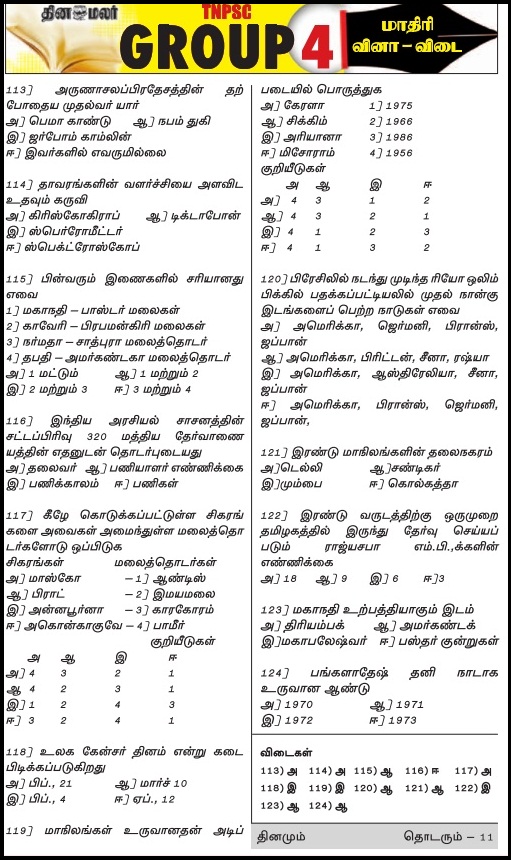 தின மலர்
TNPSC
GROUP 4
மாதிரி
வினா – விடை
113] அருணாசலப்பிரதேசத்தின் தற்
போதைய முதல்வர் யார்
அ] பெமா காண்டு ஆ] நபம் துகி
இ] ஜர்போம் காம்லின்
ஈ] இவர்களில் எவருமில்லை
114] தாவரங்களின் வளர்ச்சியை அளவிட
உதவும் கருவி
அ] கிரிஸ்கோகிராப் ஆ] டிக்டாபோன்
இ] ஸ்பெர்ரோமீட்டர்
ஈ] ஸ்பெக்ட்ரோஸ்கோப்
115] பின்வரும் இணைகளில் சரியானது
எவை
1] மகாநதி – பாஸ்டர் மலைகள்
2] காவேரி – பிரபமன்கிரி மலைகள்
3] நர்மதா – சாத்புரா மலைத்தொடர்
4] தபதி – அமர்கண்டகா மலைத்தொடர்
அ] 1 மட்டும் ஆ] 1 மற்றும் 2
இ] 2 மற்றும் 3 ஈ] 3 மற்றும் 4
116] இந்திய அரசியல் சாசனத்தின்
சட்டப்பிரிவு 320 மத்திய தேர்வாணை
யத்தின் எதனுடன் தொடர்புடையது
அ] தலைவர் ஆ] பணியாளர் எண்ணிக்கை
இ] பணிக்காலம் ஈ] பணிகள்
117] கீழே கொடுக்கப்பட்டுள்ள சிகரங்
களை அவைகள் அமைந்துள்ள மலைத்தொ
டர்களோடு ஒப்பிடுக
சிகரங்கள் மலைத்தொடர்கள்
அ] மாஸ்கோ – 1] ஆண்டிஸ்
ஆ] பிராட் – 2] இமயமலை
இ] அன்னபூர்னா – 3] காரகோரம்
ஈ] அகொன்காகுவே – 4] பாமீர்
குறியீடுகள்
அ ஆ இ ஈ
அ] 4 3 2 1
ஆ 4 2 3 1
இ] 1 2 4 3
ஈ] 3 2 4 1
118] உலக கேன்சர் தினம் என்று கடை
பிடிக்கப்படுகிறது
அ] பிப்., 21 ஆ] மார்ச் 10
இ] பிப்., 4 ஈ] ஏப்., 12
119] மாநிலங்கள் உருவானதன் அடிப்
படையில் பொருத்துக
அ] கேரளா 1] 1975
ஆ] சிக்கிம் 2] 1966
இ] அரியானா 3] 1986
ஈ] மிசோராம் 4] 1956
குறியீடுகள்
அ ஆ இ ஈ
அ] 4 3 1 2
ஆ] 4 3 2 1
இ] 4 1 2 3
ஈ] 4 1 3 2
120] பிரேசிலில் நடந்து முடிந்த ரியோ ஒலிம்
பிக்கில் பதக்கப்பட்டியலில் முதல் நான்கு
இடங்களைப் பெற்ற நாடுகள் எவை
அ] அமெரிக்கா, ஜெர்மனி, பிரான்ஸ்,
ஜப்பான்
ஆ] அமெரிக்கா, பிரிட்டன், சீனா, ரஷ்யா
இ] அமெரிக்கா, ஆஸ்திரேலியா, சீனா,
ஜப்பான்
ஈ] அமெரிக்கா, பிரான்ஸ், ஜெர்மனி,
ஜப்பான்,
121] இரண்டு மாநிலங்களின் தலைநகரம்
அ]டெல்லி ஆ]சண்டிகர்
இ]மும்பை ஈ] கொல்கத்தா
122] இரண்டு வருடத்திற்கு ஒருமுறை
தமிழகத்தில் இருந்து தேர்வு செய்யப்
படும் ராஜ்யசபா எம்.பி.,க்களின்
எண்ணிக்கை
அ] 18 ஆ] 9 இ] 6 ஈ]3
123] மகாநதி உற்பத்தியாகும் இடம்
அ] திரியம்பக் ஆ] அமர்கண்டக்
இ]மகாபலேஷ்வர் ஈ] பஸ்தர் குன்றுகள்
124] பங்களாதேஷ் தனி நாடாக
உருவான ஆண்டு
அ] 1970 ஆ] 1971
இ] 1972 ஈ] 1973
விடைகள்
113) அ 114) அ 115) ஆ 116) ஈ 117) அ
118) இ 119) இ 120) ஆ 121) ஆ 122) இ
123) ஆ 124) ஆ
தினமும் தொடரும் – 11